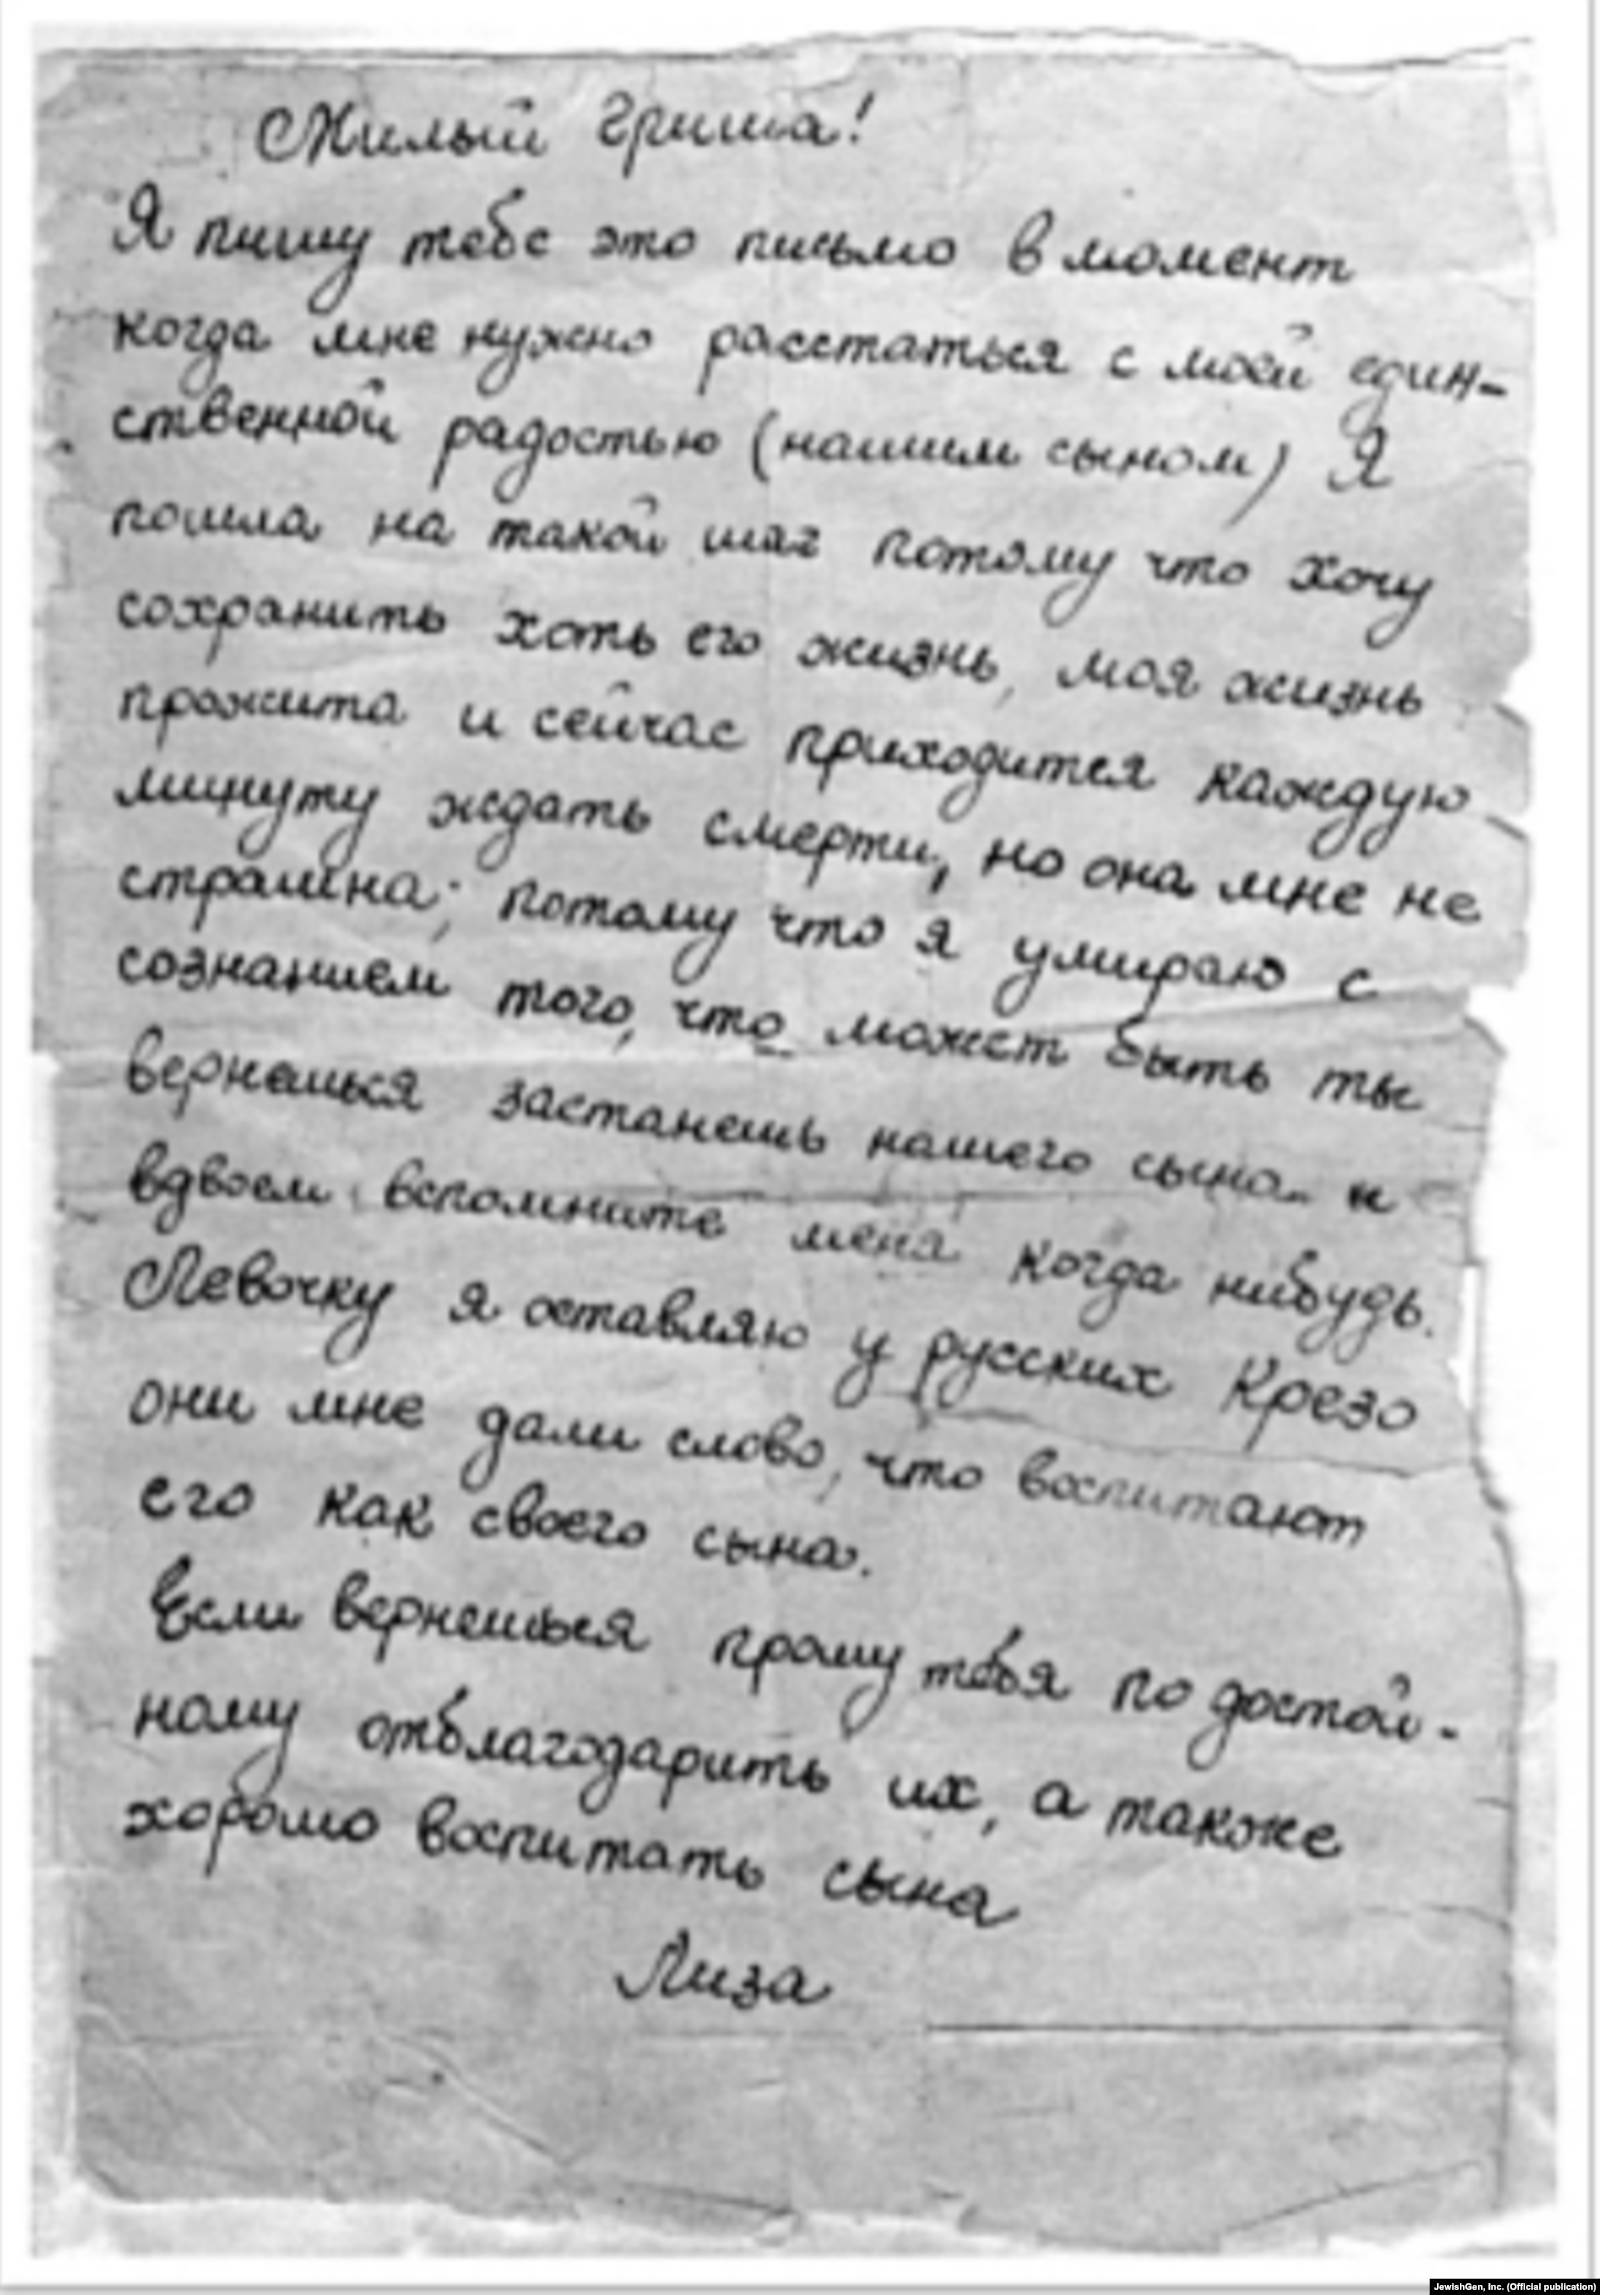 Милый Гриша!
Я пишу тебе это письмо в момент
когда мне нужно расстаться с моей един-
ственной радостью (нашим сыном) Я
пошла на такой шаг потому что хочу
сохранить хоть его жизнь, моя жизнь
прожита и сейчас приходится каждую
минуту ждать смерти, но она мне не
страшна; потому что я умираю с
сознанием того, что может быть ты
вернешься застанешь нашего сына и
вдвоем вспомните меня когда нибудь.
Левочку я оставляю у русских Крезо
они мне дали слово, что воспитают
его как своего сына.
Если вернешься прошу тебя по достой-
ному отблагодарить их, а также
хорошо воспитать сына
Лиза
JewishGen, Inc. (Official publication)